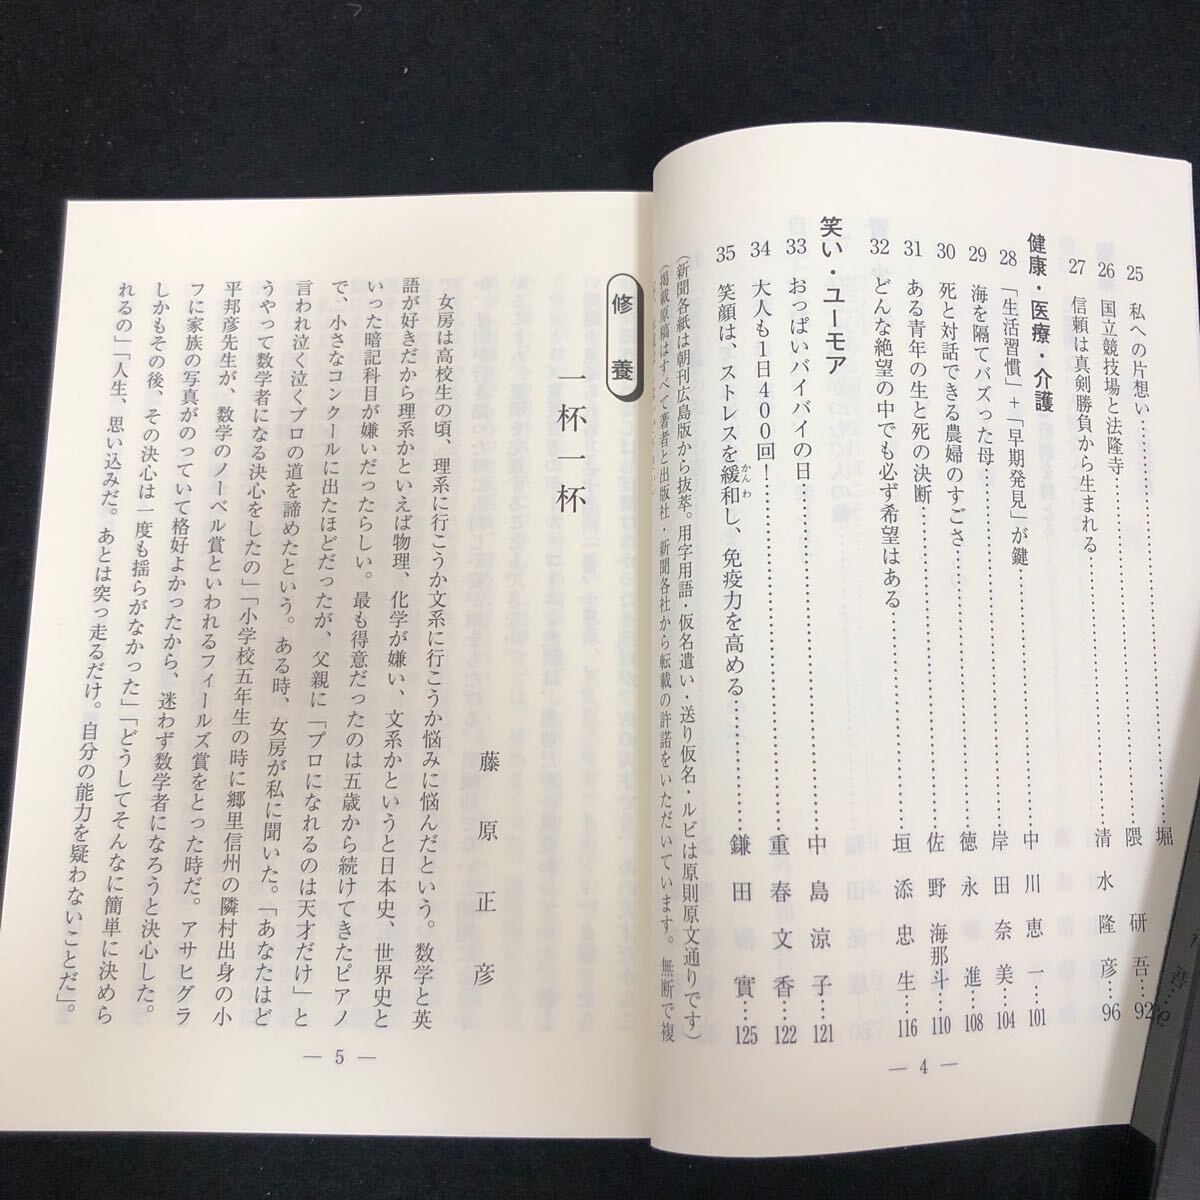 25　私への片想い……堀
26　国立競技場と法隆寺……隈　研　吾…92
27　信頼は真剣勝負から生まれる……清　水　隆　彦…96
健康・医療・介護
28　「生活習慣」+「早期発見」が鍵……中　川　恵　一…101
29　海を隔てバズった母……岸　田　奈　美…104
30　死と対話できる農婦のすごさ……徳　永　　進…108
31　ある青年の生と死の決断……佐　野　海那斗…110
32　どんな絶望の中でも必ず希望はある……垣　添　忠　生…116
笑い・ユーモア
33　おっぱいバイバイの日……中　島　涼　子…121
34　大人も1日400回！……重　春　文　香…122
35　笑顔は、ストレスを緩和し、免疫力を高める……鎌　田　　實…125
かんわ
(新聞各紙は朝刊広島版から抜萃。用字用語・仮名遣い・送り仮名・ルビは原則原文通りです)
(掲載原稿はすべて著者と出版社・新聞各社から転載の許諾をいただいています。無断で複
— 4 —
修　養
一杯一杯
藤　原　正　彦
女房は高校生の頃、理系に行こうか文系に行こうか悩みに悩んだという。数学と英
語が好きだから理系かといえば物理、化学が嫌い、文系かというと日本史、世界史と
いった暗記科目が嫌いだったらしい。最も得意だったのは五歳から続けてきたピアノ
で、小さなコンクールに出たほどだったが、父親に「プロになれるのは天才だけ」と
言われ泣く泣くプロの道を諦めたという。ある時、女房が私に聞いた。「あなたはど
うやって数学者になる決心をしたの」「小学校五年生の時に郷里信州の隣村出身の小
平邦彦先生が、数学のノーベル賞といわれるフィールズ賞をとった時だ。アサヒグラ
フに家族の写真がのっていて格好よかったから、迷わず数学者になろうと決心した。
しかもその後、その決心は一度も揺らがなかった」「どうしてそんなに簡単に決めら
れるの」「人生、思い込みだ。あとは突っ走るだけ。自分の能力を疑わないことだ」。
— 5 —